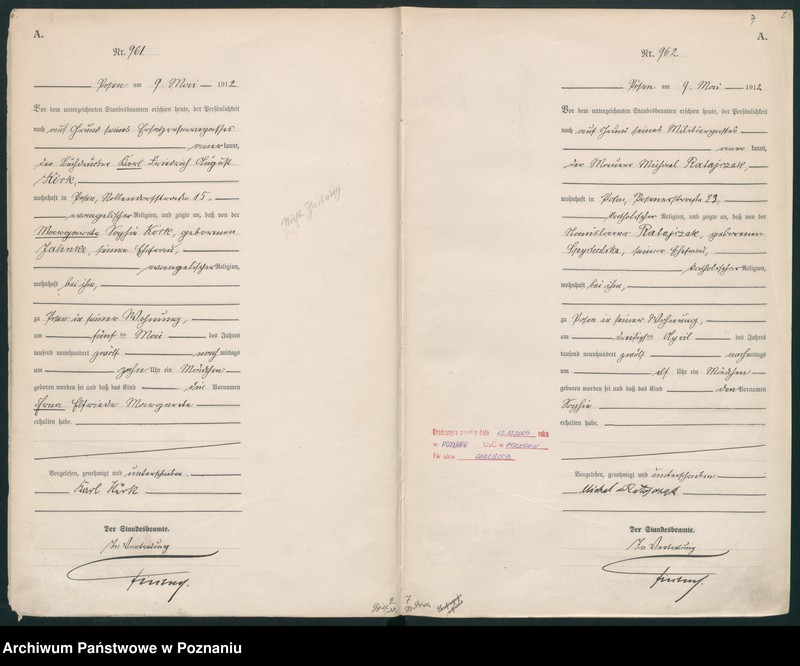 A.
Nr. 961
Posen am 9. Mai 1912
Vor dem unterzeichneten Standesbeamten erschien heute, der Persönlichkeit
nach auf Grund seines
anerkannt,
der Buchdrucker Karl Friedrich August
Kirk,
wohnhaft in Posen, Nollendorfstraße 15,
evangelischer Religion, und zeigte an, daß von der
Margarete Sophie Kirk, geborenen
Jahnke, seiner Ehefrau,
evangelischer Religion,
wohnhaft bei ihm,
zu Posen in seiner Wohnung,
am fünften Mai des Jahres
tausend neunhundert zwölf nachmittags
um zehn Uhr ein Mädchen
geboren worden sei und daß das Kind den Vornamen
Erna Elfriede Margarete
erhalten habe.
Vorgelesen, genehmigt und unterschrieben
Karl Kirk
Der Standesbeamte.
In Vertretung
7
A.
Nr. 962
Posen am 9. Mai 1912
Vor dem unterzeichneten Standesbeamten erschien heute, der Persönlichkeit
nach auf Grund seines Militärpasses
anerkannt,
der Maurer Michael Ratajczak,
wohnhaft in Posen, Posenerstraße 23,
katholischer Religion, und zeigte an, daß von der
Stanislawa Ratajczak, geborenen
seiner Ehefrau,
katholischer Religion,
wohnhaft bei ihm,
zu Posen in seiner Wohnung,
am dreißigsten April des Jahres
tausend neunhundert zwölf nachmittags
um elf Uhr ein Mädchen
geboren worden sei und daß das Kind den Vornamen
Sophie
erhalten habe.
Vorgelesen, genehmigt und unterschrieben
Michael Ratajczak
Der Standesbeamte.
In Vertretung
roku
w POZNANIU USC w POZNANIU
Nr aktu
Archiwum Państwowe w Poznaniu